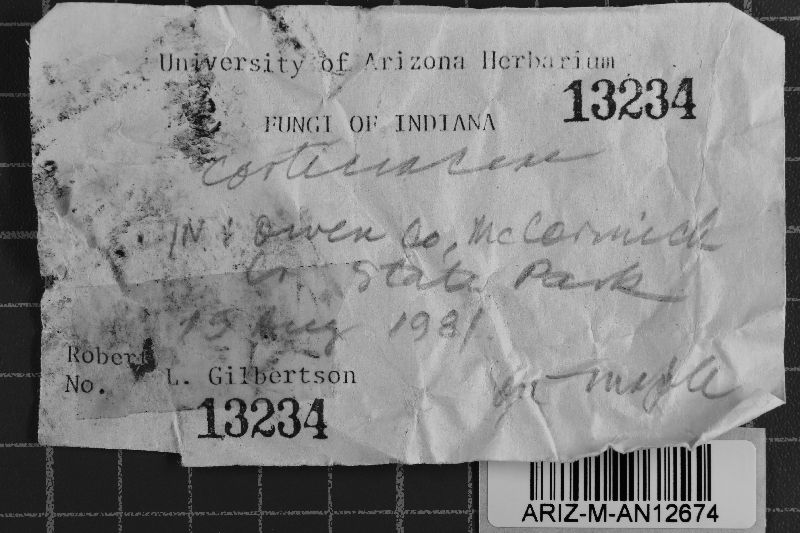 University of Arizona Herbarium
13234
FUNGI OF INDIANA
Corticiaceae
IN: Owen Co, McCormick
Cr. State Park
15 Aug 1981
Robert L. Gilbertson
on maple
No. 13234
ARIZ-M-AN12674